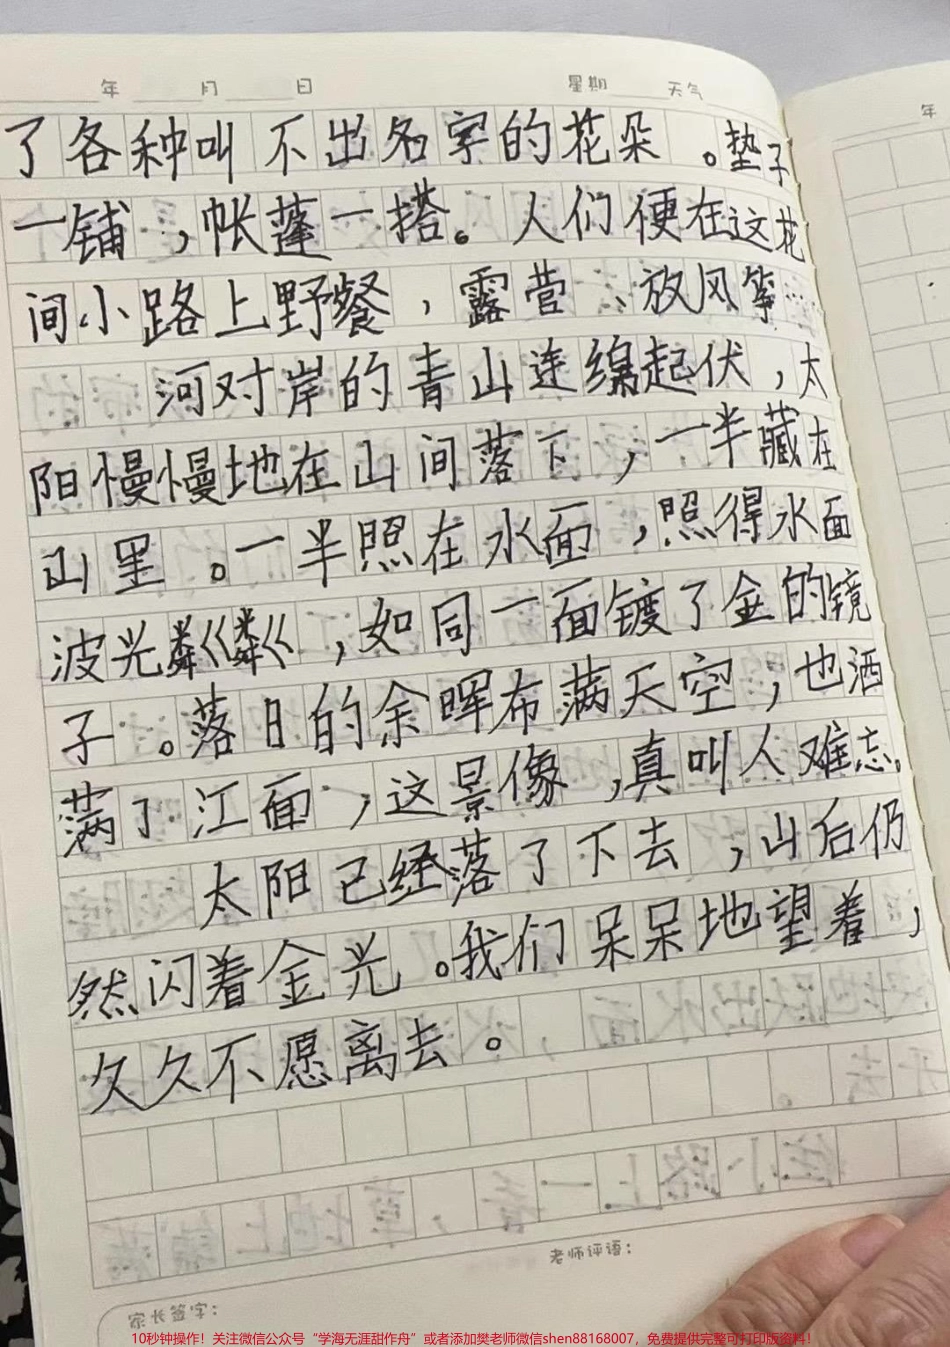 年 月 日 星期 天气
年
了各种叫不出名字的花朵。垫子
一铺，帐蓬一搭。人们便在这花
间小路上野餐，露营、放风筝
河对岸的青山连绵起伏，太
阳慢慢地在山间落下，一半藏在
山里。一半照在水面，照得水面
波光粼粼，如同一面镀了金的镜
子。落日的余晖布满天空，也洒
满了江面，这景像，真叫人难忘。
太阳已经落了下去，山后仍
然闪着金光。我们呆呆地望着，
久久不愿离去。
老师评语：
家长签字：
10秒钟操作！关注微信公众号“学海无涯甜作舟”或者添加樊老师微信shen88168007，免费提供完整可打印版资料！